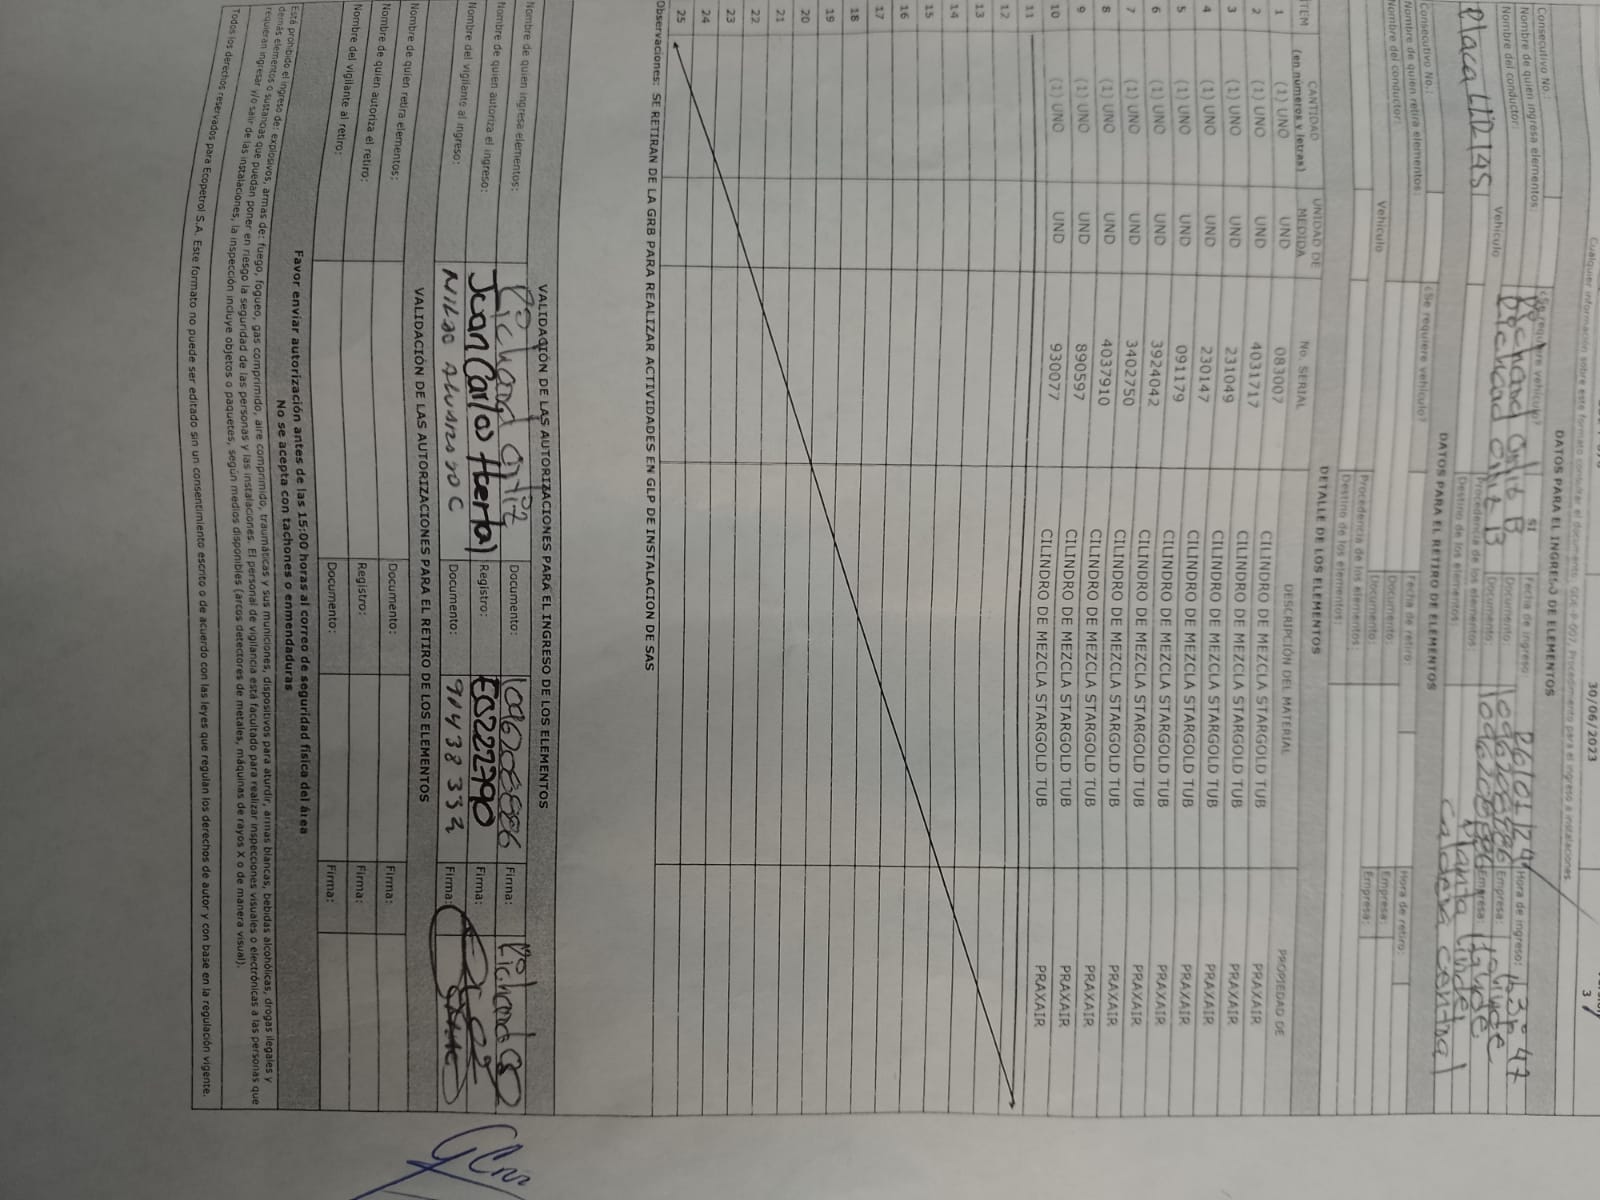 30/06/2023
3
Cualquier información sobre este formato consultar el documento: GDE-P-007, Procedimiento para el ingreso a instalaciones
DATOS PARA EL INGRESO DE ELEMENTOS
Consecutivo No.: Fecha de ingreso: 26/01/24 Hora de ingreso:
Nombre de quien ingresa elementos: Richard Ortiz B Documento: Empresa: Linde
Nombre del conductor: Richard Ortiz B Documento: Empresa: Linde
Vehículo ¿Se requiere vehículo? SI Procedencia de los elementos: Planta Linde
Placa Destino de los elementos: caldera central
DATOS PARA EL RETIRO DE ELEMENTOS
Consecutivo No.: Fecha de retiro: Hora de retiro:
Nombre de quien retira elementos: Documento: Empresa:
Nombre del conductor: Documento: Empresa:
Vehículo ¿Se requiere vehículo? Procedencia de los elementos:
Destino de los elementos:
DETALLE DE LOS ELEMENTOS
ITEM CANTIDAD (en números y letras) UNIDAD DE MEDIDA No. SERIAL DESCRIPCIÓN DEL MATERIAL PROPIEDAD DE
1 (1) UNO UND 083007 CILINDRO DE MEZCLA STARGOLD TUB PRAXAIR
2 (1) UNO UND 4031717 CILINDRO DE MEZCLA STARGOLD TUB PRAXAIR
3 (1) UNO UND 231049 CILINDRO DE MEZCLA STARGOLD TUB PRAXAIR
4 (1) UNO UND 230147 CILINDRO DE MEZCLA STARGOLD TUB PRAXAIR
5 (1) UNO UND 091179 CILINDRO DE MEZCLA STARGOLD TUB PRAXAIR
6 (1) UNO UND 3924042 CILINDRO DE MEZCLA STARGOLD TUB PRAXAIR
7 (1) UNO UND 3402750 CILINDRO DE MEZCLA STARGOLD TUB PRAXAIR
8 (1) UNO UND 4037910 CILINDRO DE MEZCLA STARGOLD TUB PRAXAIR
9 (1) UNO UND 890597 CILINDRO DE MEZCLA STARGOLD TUB PRAXAIR
10 (1) UNO UND 930077 CILINDRO DE MEZCLA STARGOLD TUB PRAXAIR
11
12
13
14
15
16
17
18
19
20
21
22
23
24
25
Observaciones: SE RETIRAN DE LA GRB PARA REALIZAR ACTIVIDADES EN GLP DE INSTALACION DE SAS
VALIDACIÓN DE LAS AUTORIZACIONES PARA EL INGRESO DE LOS ELEMENTOS
Nombre de quien ingresa elementos: Richard Ortiz Documento: Firma: Richard
Nombre de quien autoriza el ingreso: Juan Carlos Registro: E0222790 Firma:
Nombre del vigilante al ingreso: Documento: Firma:
VALIDACIÓN DE LAS AUTORIZACIONES PARA EL RETIRO DE LOS ELEMENTOS
Nombre de quien retira elementos: Documento: Firma:
Nombre de quien autoriza el retiro: Registro: Firma:
Nombre del vigilante al retiro: Documento: Firma:
Favor enviar autorización antes de las 15:00 horas al correo de seguridad física del área
No se acepta con tachones o enmendaduras
Está prohibido el ingreso de: explosivos, armas de: fuego, fogueo, gas comprimido, aire comprimido, traumáticas y sus municiones, dispositivos para aturdir, armas blancas, bebidas alcohólicas, drogas ilegales y
demás elementos o sustancias que puedan poner en riesgo la seguridad de las personas y las instalaciones. El personal de vigilancia está facultado para realizar inspecciones visuales o electrónicas a las personas que
requieran ingresar y/o salir de las instalaciones, la inspección incluye objetos o paquetes, según medios disponibles (arcos detectores de metales, máquinas de rayos X o de manera visual).
Todos los derechos reservados para Ecopetrol S.A. Este formato no puede ser editado sin un consentimiento escrito o de acuerdo con las leyes que regulan los derechos de autor y con base en la regulación vigente.